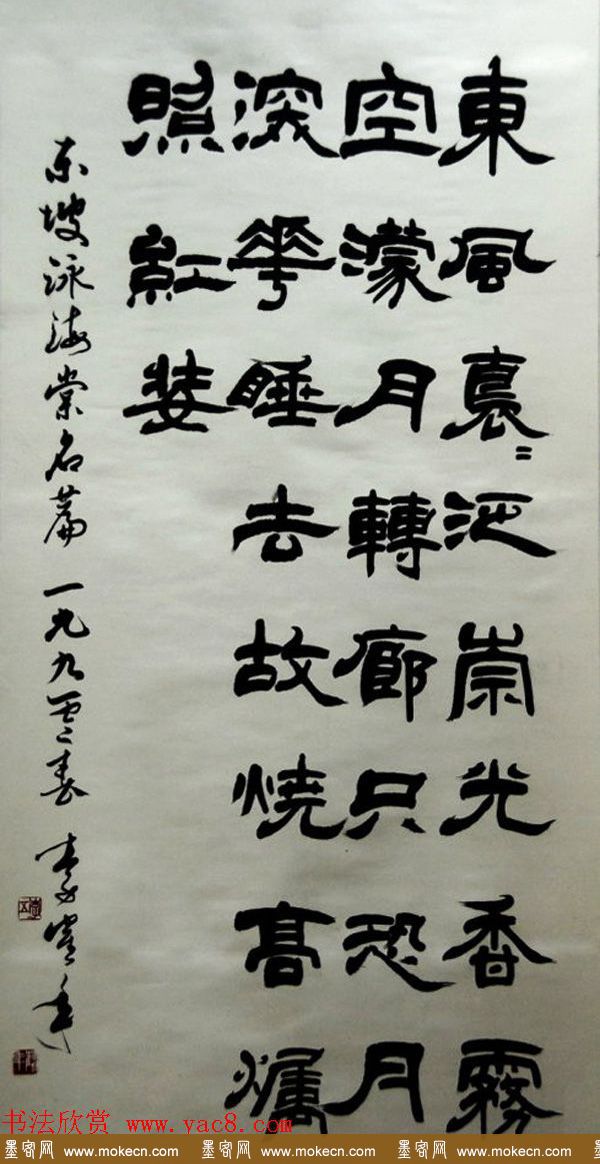 東風裊〻泛崇光香霧
空濛月轉廊只恐月
深花睡去故燒高爥
照紅娤
东坡泳海棠名篇 一九九零春 李
书法欣赏 www.yac8.com
墨客网 www.mokecn.com 墨客网 www.mokecn.com 墨客网 www.mokecn.com